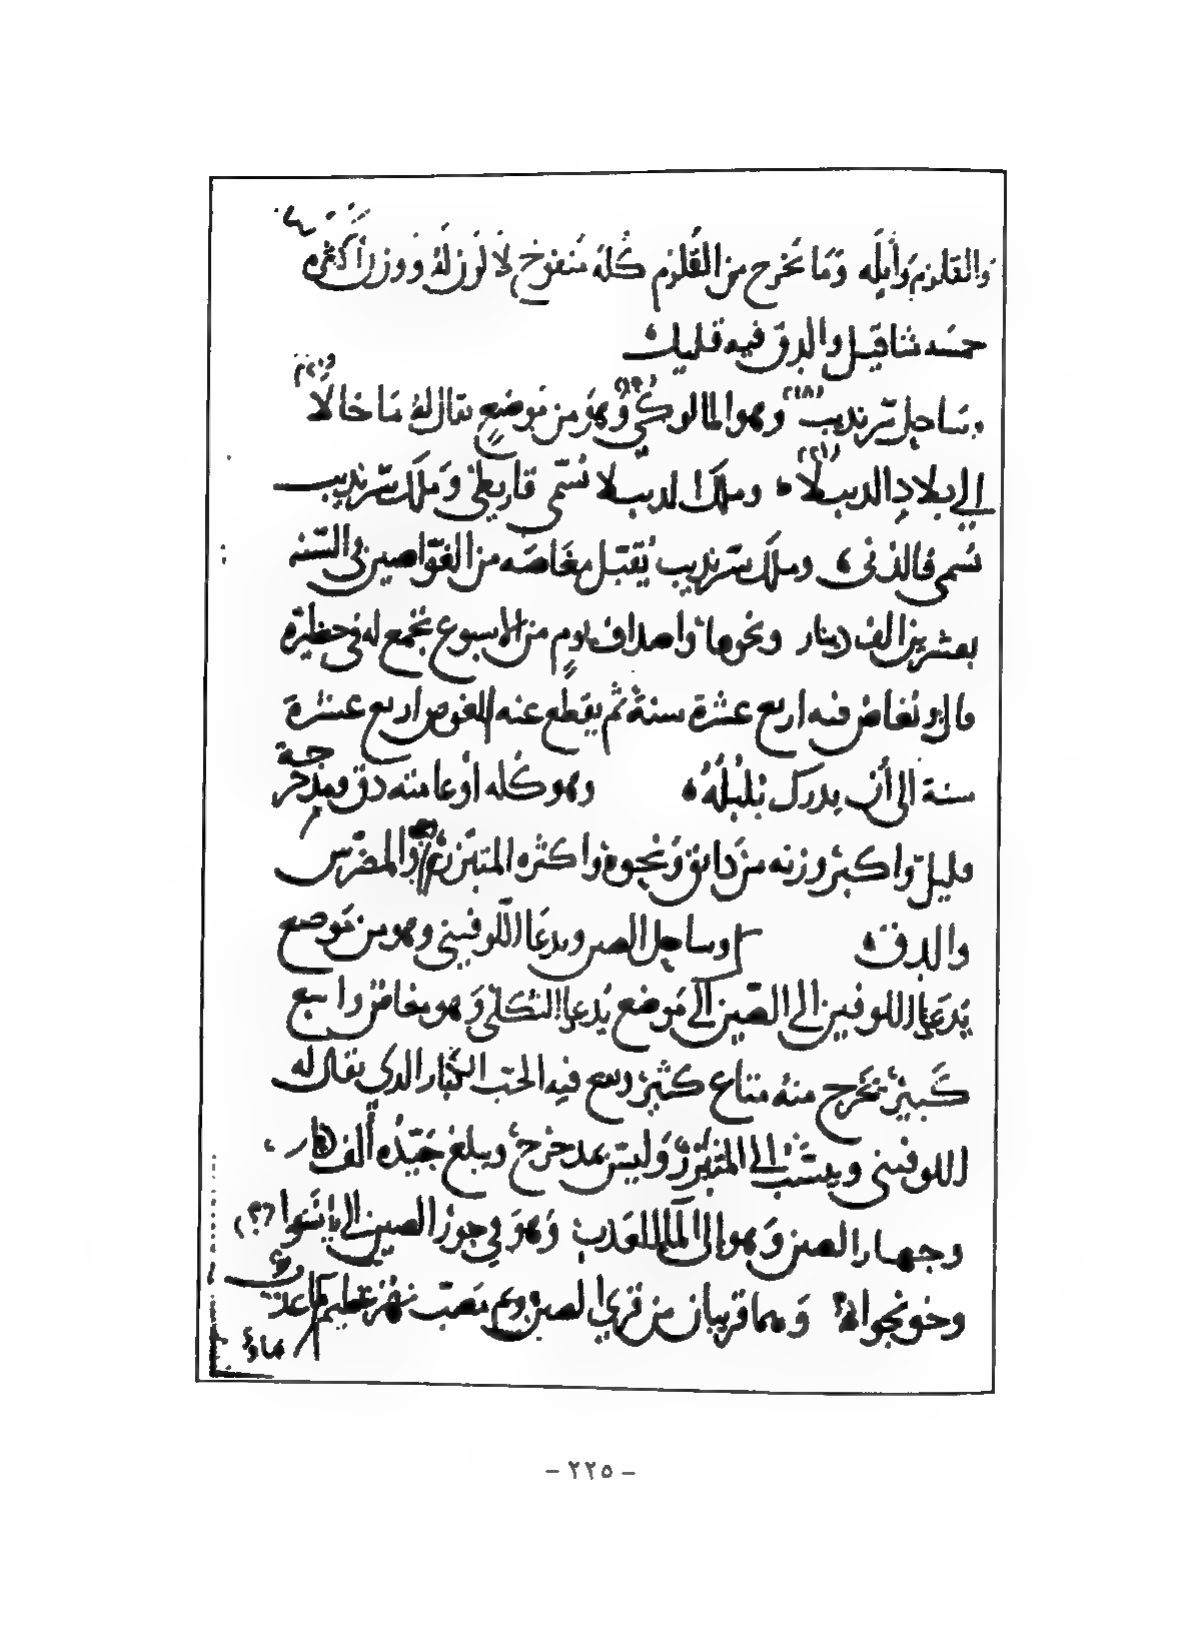 والقلزم وأيله وَمَا يَخرج من القُلزم كُلهُ مُنفرخ لا لون لهُ ووزن أكثره
خمسة مثاقيل والدق فيه قليل
وساحل سرنديب (٢١٨) وهو المالوكي (٢١٩) وهو من موضع يقال له ماخالا (٢٢٠)
إلي بلاد الديبلا (٢٢١) وملك الديبلا تسمى قاريطى وملك سرنديب
تسمى فالذنى وملك سرنديب يُقتبل مغاصه من الغوّاصين في السّنه
بعشرين الف دينار ونحوها واصداف يومٍ من الاسبوع يجمع له في حظيرة
قال ويُغاص فيه اربع عشرة سنةً ثم يقطع عنه الغوص اربع عشرة
سنة الى أن يدرك بُلبُلهُ وهو كله أو عامته دق ومدحرجة
قليل واكبر وزنه من دانق ونحوه واكثره والمضرّس
والدق وساحل الصين ويدعا اللوفينى وهو من موضع
يُدعا اللوفين إلى الصّين إلى مَوضع يُدعا وهو مغاص واسع
كَبير يَخرج منهُ متاع كثير ويقع فيه الحبّ الكبار الذي يقال له
اللوفينى وينسَب إلى وليس بمدحرج ويبلغ جيّده ألف دينار
وجهار الصين وَهو إلى الماء العذب وَهوَ في جوز الصين إلى (؟)
وخونجوا وَهما قريبان من قري الصين وهي مصَبّ نهر عظيم ماء عذب
ماؤه
- ٢٢٥ -